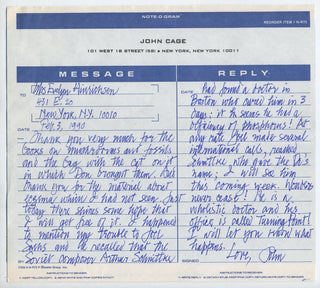 NOTE-O-GRAM®
REORDER ITEM # N-R73
JOHN CAGE
101 WEST 18 STREET (5B) • NEW YORK, NEW YORK 10011
MESSAGE
TO
Mrs Evelyn Hinrichsen
431 E. 20
New York, N.Y. 10010
DATE
Feb 3, 1990
Thank you very much for the
books on mushrooms and fossils
and the bag with the cat on it
in which Don brought them. And
thank you for the material about
eczema which I had not seen. Just
today there seems some hope that
I will get free of it. I happened
to mention my trouble to Joel
Sachs and he recalled that the
Soviet composer Alfred Schnittke
BY
REPLY
had found a doctor in
Boston who cured him in 3
days; it seems he had a
deficiency of phosphorus! At
any rate Joel made several
international calls, reached
Schnittke who gave the Dr's
name; I will see him
this coming week. Wonders
never cease! He is a
wholistic doctor and his
office is called Turning Point!
I will let you know what
happens.
Love, John
DATE
SIGNED
INSTRUCTIONS TO SENDER:
INSTRUCTIONS TO RECEIVER: